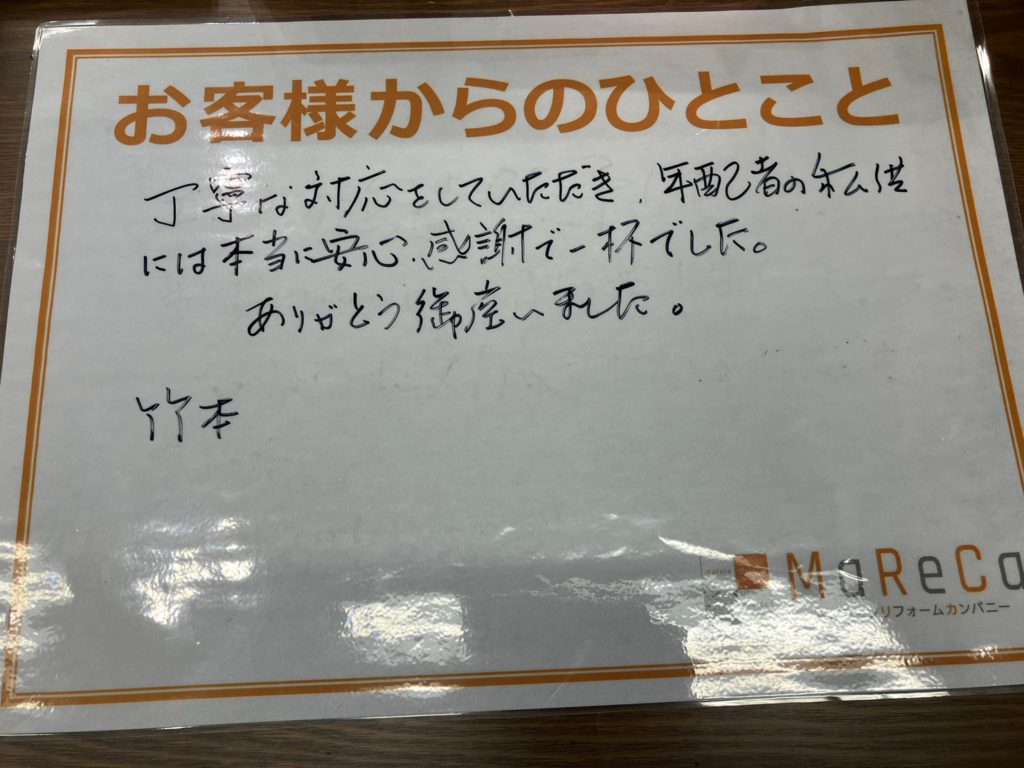 お客様からのひとこと
丁寧な対応をしていただき、年配者の私供
には本当に安心、感謝で一杯でした。
ありがとう御座いました。
竹本
MaReCa
リフォームカンパニー